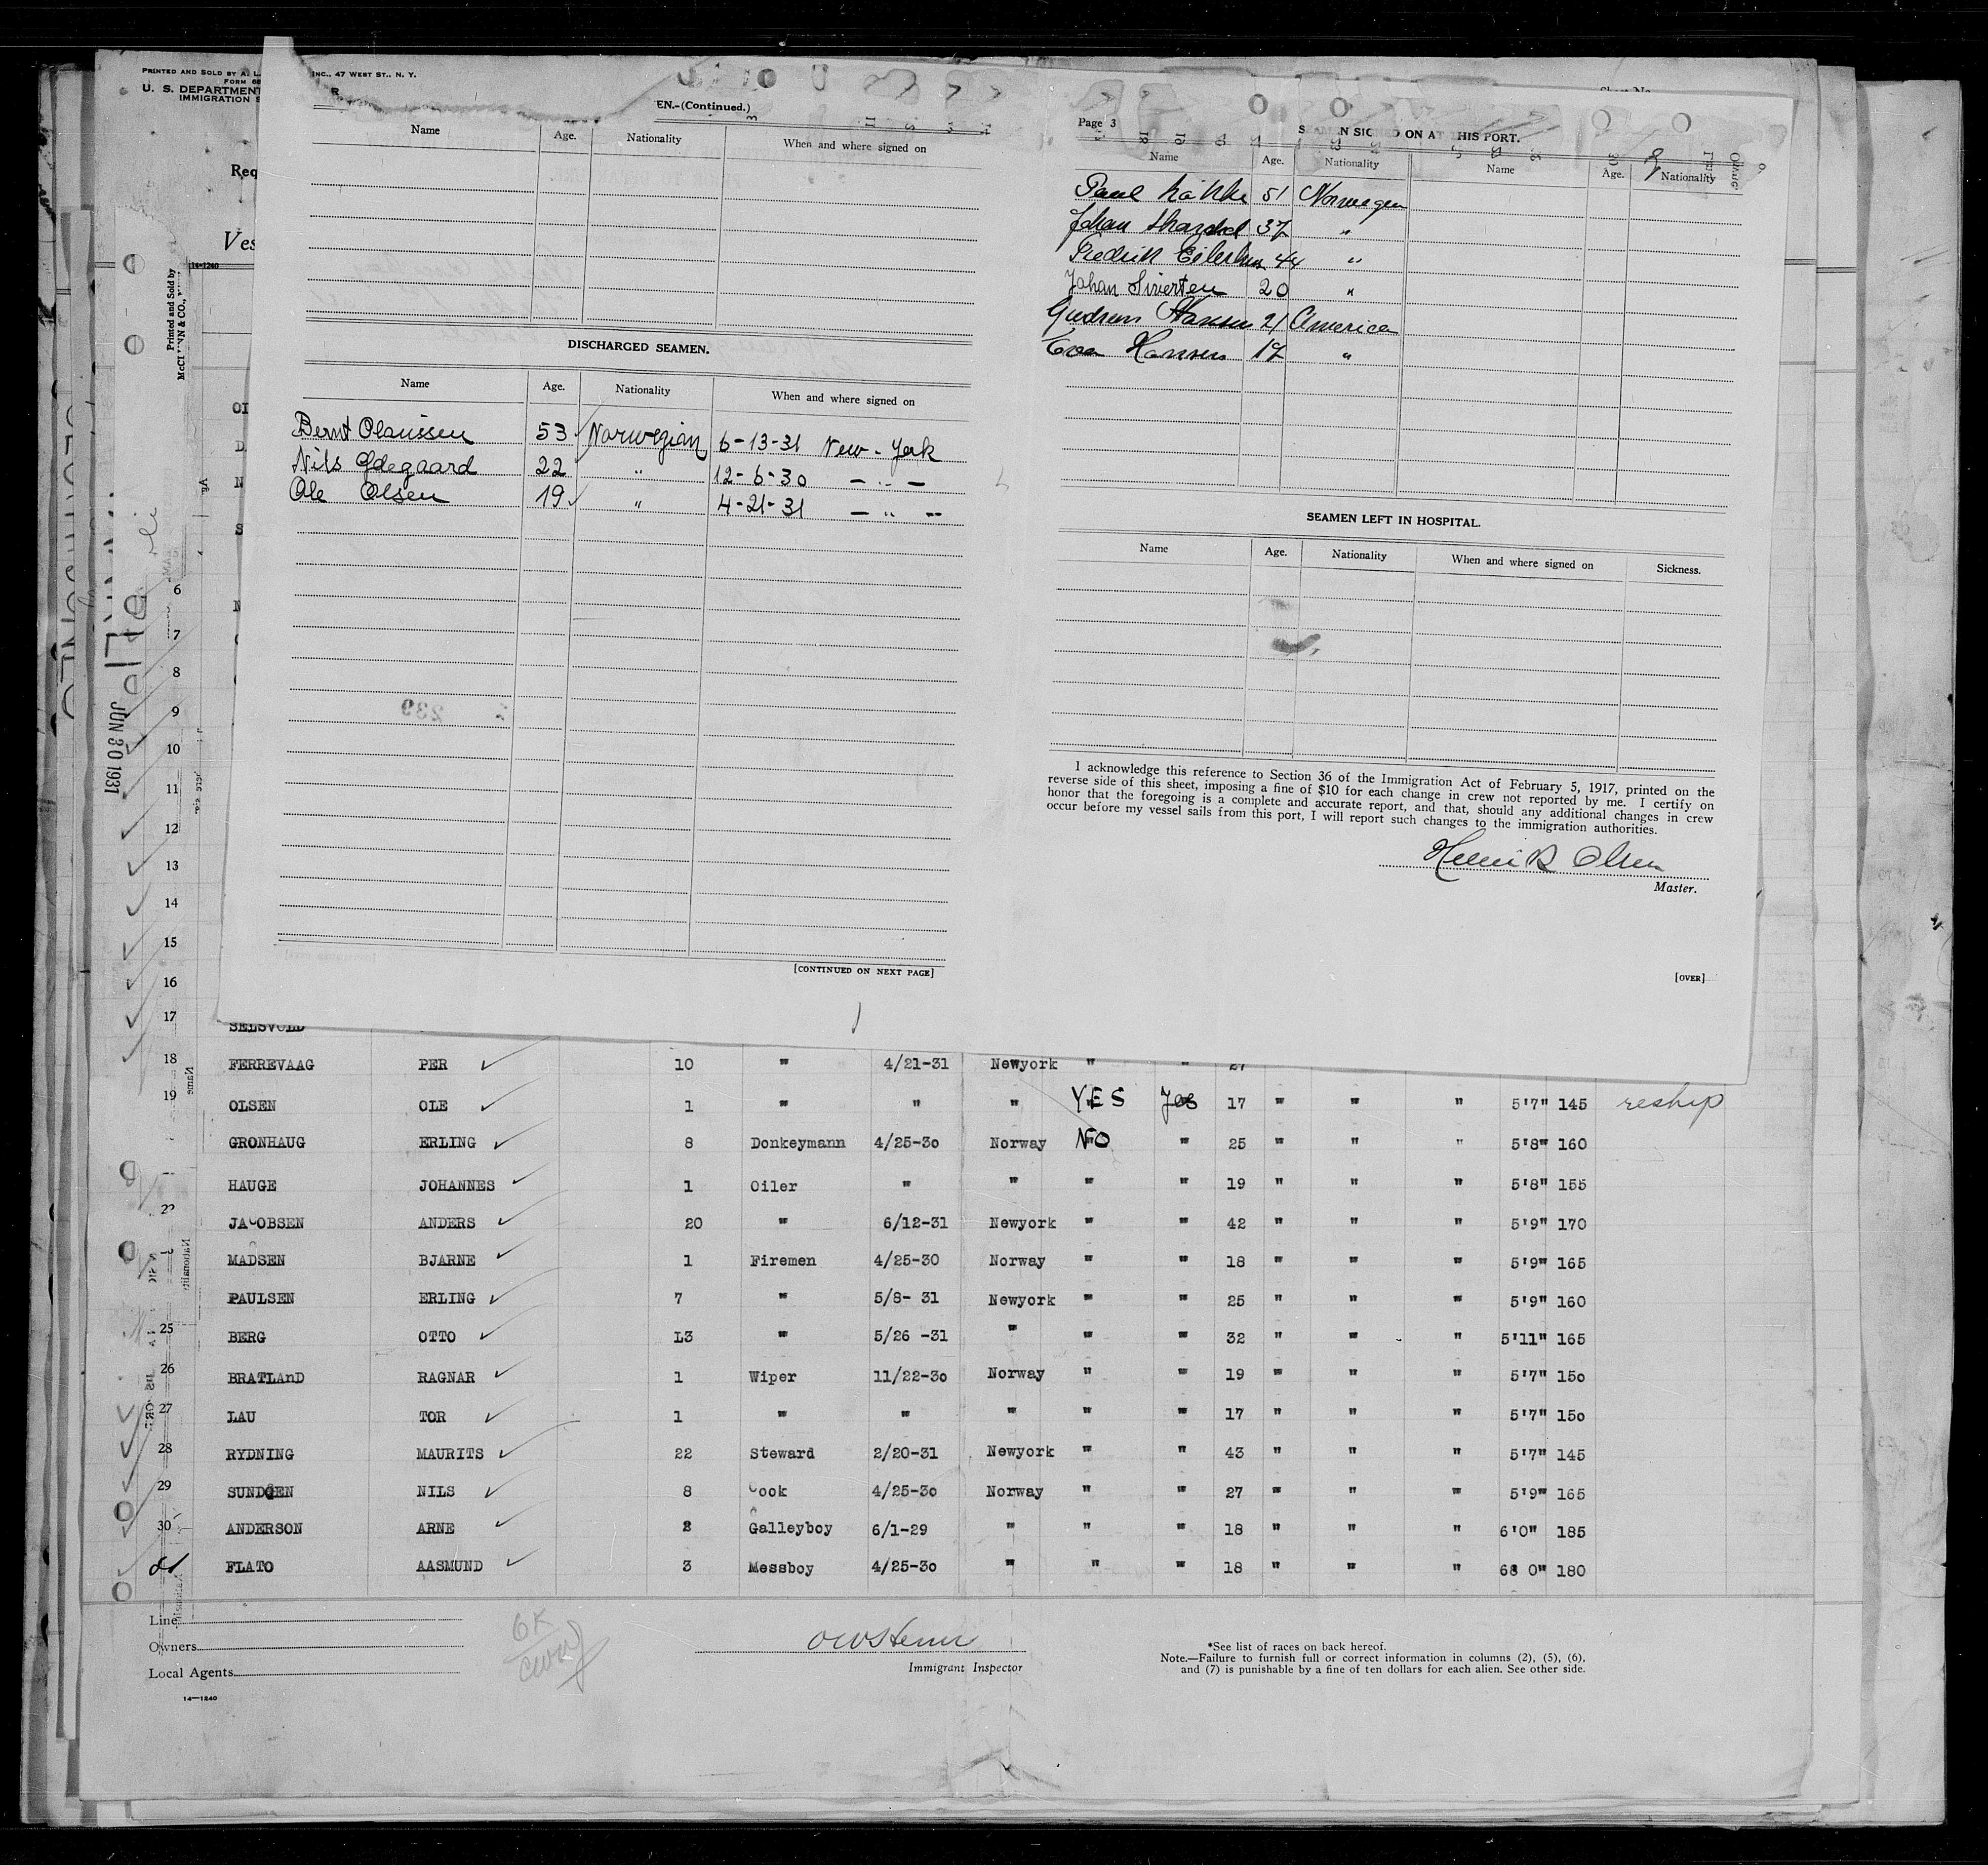 PRINTED AND SOLD BY A. L.
INC., 47 WEST ST., N. Y.
U. S. DEPARTMENT
IMMIGRATION S
Req
Ves
14-1240
Printed and Sold by
JUN 30 1931
EN.-(Continued.)
Name Age. Nationality When and where signed on
DISCHARGED SEAMEN.
Name Age. Nationality When and where signed on
Bernt Olaussen 53 Norwegian 6-13-31 New-York
Nils Odegaard 22 " 12-6-30 - " -
Ole Olsen 19 " 4-21-31 - " -
239
[CONTINUED ON NEXT PAGE]
Page 3
SIGNED ON AT THIS PORT.
Name Age. Nationality Name Age. Nationality
Paul 51 Norwegen
Johan 37 "
Fredrik 44 "
Johan Sivertsen 20 "
Gudrun Hansen 21 America
Eva Hansen 17 "
SEAMEN LEFT IN HOSPITAL.
Name Age. Nationality When and where signed on Sickness.
I acknowledge this reference to Section 36 of the Immigration Act of February 5, 1917, printed on the
reverse side of this sheet, imposing a fine of $10 for each change in crew not reported by me. I certify on
honor that the foregoing is a complete and accurate report, and that, should any additional changes in crew
occur before my vessel sails from this port, I will report such changes to the immigration authorities.
Henrik Olsen
Master.
[OVER]
6
7
8
9
10
11
12
13
14
15
16
17
SELSVOLD
18 FERREVAAG PER 10 " 4/21-31 Newyork " " 27
19 OLSEN OLE 1 " " " YES Yes 17 " " " 5'7" 145 reship
GRONHAUG ERLING 8 Donkeymann 4/25-30 Norway NO " 25 " " " 5'8" 160
HAUGE JOHANNES 1 Oiler " " " " 19 " " " 5'8" 155
22 JACOBSEN ANDERS 20 " 6/12-31 Newyork " " 42 " " " 5'9" 170
MADSEN BJARNE 1 Firemen 4/25-30 Norway " " 18 " " " 5'9" 165
PAULSEN ERLING 7 " 5/8- 31 Newyork " " 25 " " " 5'9" 160
25 BERG OTTO L3 " 5/26 -31 " " " 32 " " " 5'11" 165
26 BRATLAnD RAGNAR 1 Wiper 11/22-30 Norway " " 19 " " " 5'7" 150
27 LAU TOR 1 " " " " " 17 " " " 5'7" 150
28 RYDNING MAURITS 22 Steward 2/20-31 Newyork " " 43 " " " 5'7" 145
29 NILS 8 Cook 4/25-30 Norway " " 27 " " " 5'9" 165
30 ANDERSON ARNE 2 Galleyboy 6/1-29 " " " 18 " " " 6'0" 185
FLATO AASMUND 3 Messboy 4/25-30 " " " 18 " " " 68 0" 180
Line
Owners
Local Agents
14-1240
OK
Immigrant Inspector
*See list of races on back hereof.
Note.—Failure to furnish full or correct information in columns (2), (5), (6),
and (7) is punishable by a fine of ten dollars for each alien. See other side.